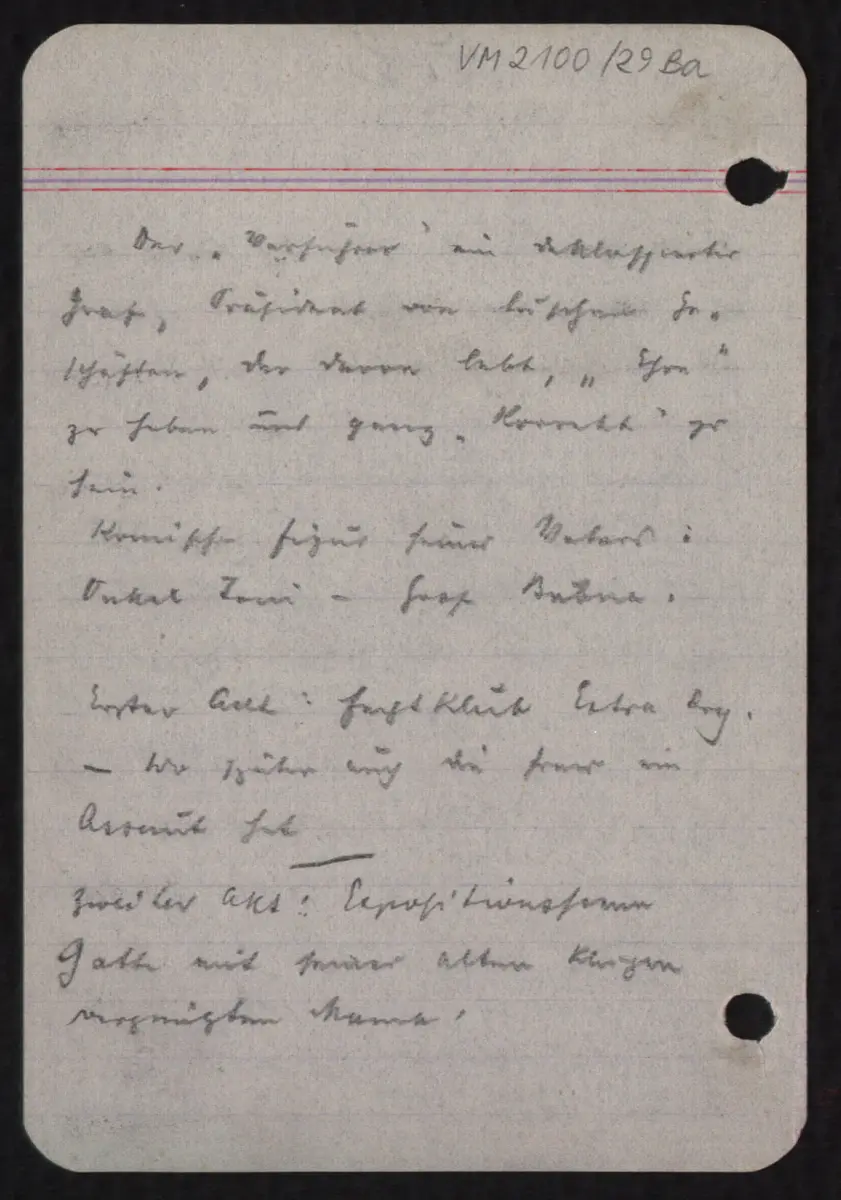 VM 2100/29 Ba
Der „Verführer" ein deklassierter
Graf, Präsident von lauschen Ge-
schäften, der davon lebt, „Ehre"
zu haben und ganz „Korrekt" zu
sein.
Komische Figur seines Vaters:
Onkel Toni – Graf Bubna.
Erster Akt: Fechtklub Extra
– wo später auch die Frau ein
Assaut hat
Zweiter Akt: Expositionsszene
Gatte mit seiner alten klugen
vergnügten Mama.